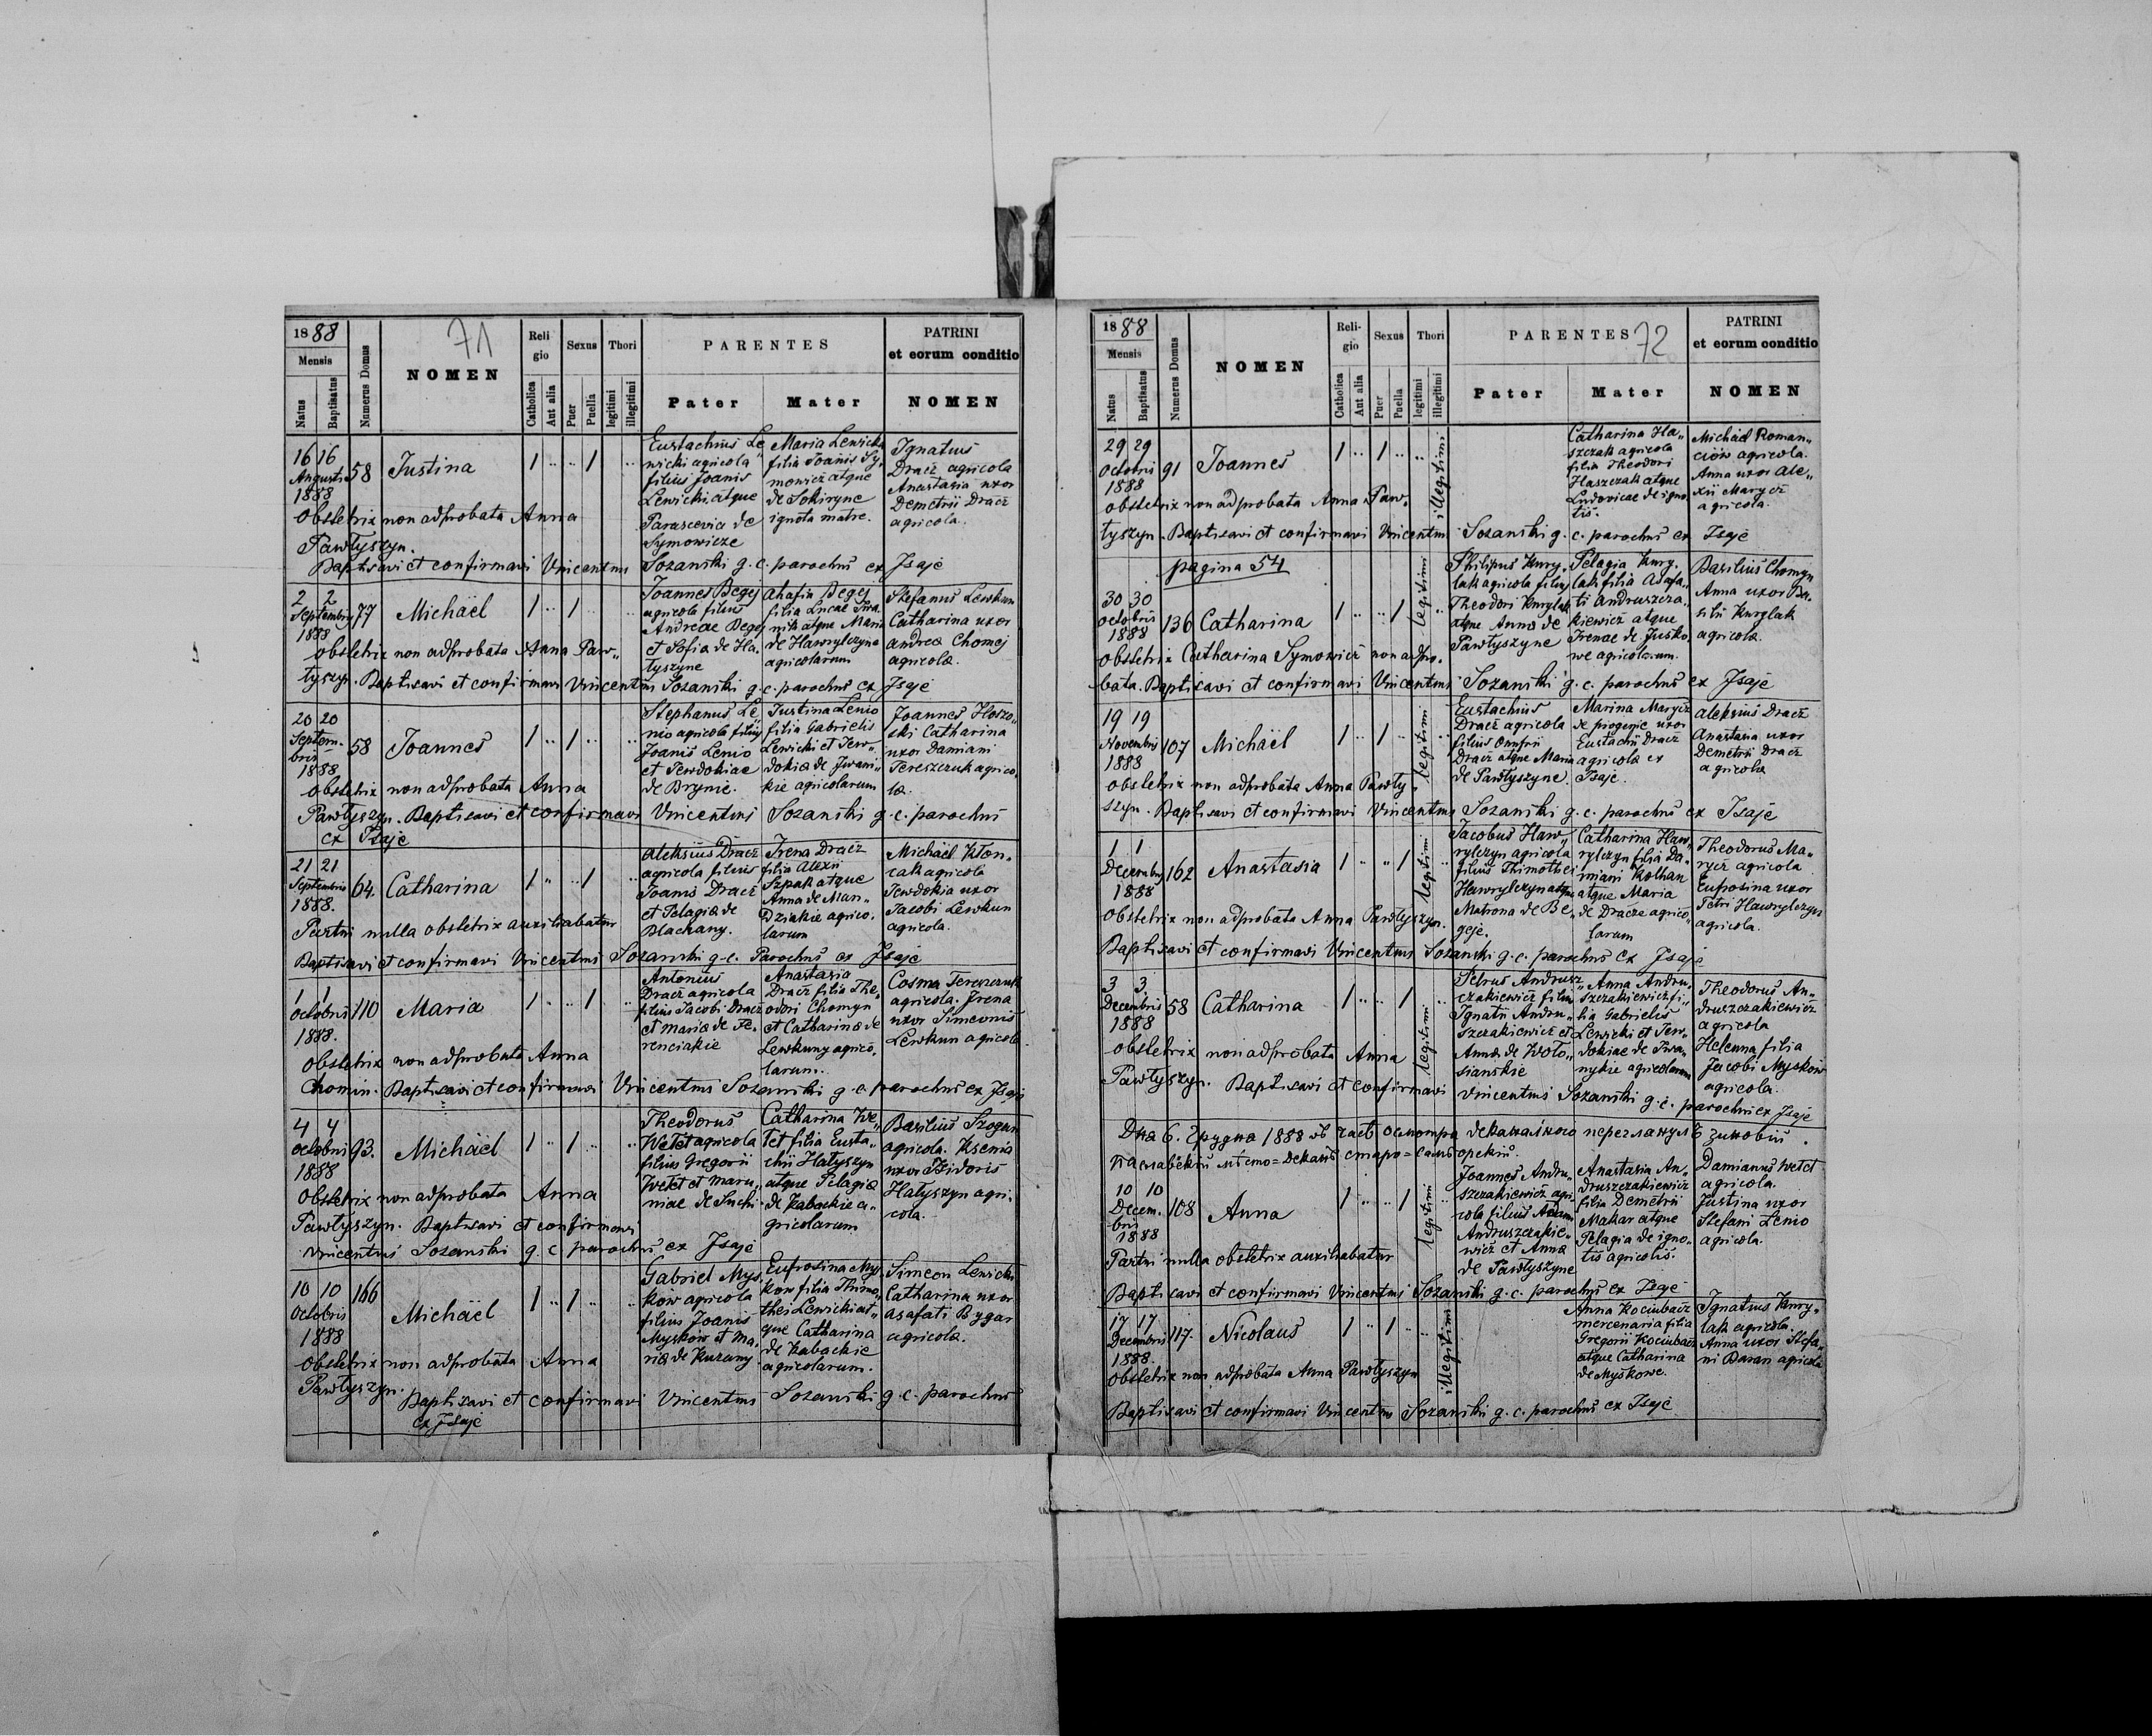 1888
71
Mensis
Natus
Baptisatus
Numerus Domus
NOMEN
Religio
Catholica
Aut alia
Sexus
Puer
Puella
Thori
legitimi
illegitimi
PARENTES
Pater
Mater
PATRINI
et eorum conditio
NOMEN
16 16
Augusti
1888
58
Justina
1 .. .. 1 ..
Eustachius Le„
wicki agricola
filius Joanis
Lewicki atque
Parascevia de
Symowicze
Maria Lewicka
filia Joanis Sy„
mowicz atque
de Sokiryne
ignota matre.
Ignatius
Dracz agricola
Anastasia uxor
Demetrii Dracz
agricola.
Obstetrix non adprobata Anna
Pawłyszyn.
Baptisavi et confirmavi Vincentius Sozanski g. c. parochus ex Jsaje
2 2
Septembris
1888
77
Michäel
1 .. 1 .. ..
Joannes Begej
agricola filius
Andreae Begej
et Sofia de Ha„
tyszyne
Ahafia Begej
filia Lucae
atque Maria
de Hawrylczyna
agricolarum
Stefanus Lewkun
Catharina uxor
Andrea Chomej
agricola.
Obstetrix non adprobata Anna Paw„
tyszyn. Baptisavi et confirmavi Vincentius Sozanski g. c. parochus ex Jsaje
20 20
Septem-
bris
1888
58
Joannes
1 .. 1 .. ..
Stephanus Le„
nio agricola filius
Joanis Lenio
et Tewdokiae
de Brynie.
Justina Lenio
filia Gabrielis
Lewicki et Jew„
dokia de Jwani„
kie agricolarum
Joannes Hoszo„
ski Catharina
uxor Damiani
Tereszczuk agrico„
la.
Obstetrix non adprobata Anna
Pawłyszyn. Baptisavi et confirmavi Vincentius Sozanski g. c. parochus
ex Jsaje
21 21
Septembris
1888.
64.
Catharina
1 .. .. 1
Aleksius Dracz
agricola filius
Joanis Dracz
et Pelagia de
Blachany.
Irena Dracz
filia Alexii
Szpak atque
Anna de Mun„
Dziakie agrico„
larum
Michäel Kłon„
cak agricola
Jewdokia uxor
Jacobi Lewkun
agricola.
Partui nulla obstetrix auxiliabatur
Baptisavi et confirmavi Vincentius Sozanski g. c. Parochus ex Jsaje
1 1
octobris
1888.
110
Maria
1 .. .. 1 ..
Antonius
Dracz agricola
filius Jacobi Dracz
et Maria de Fe„
renciakie
Anastasia
Dracz filia The„
odori Chomyn
et Catharina de
Lewkuny agrico„
larum.
Cosma Tereszczuk
agricola. Irena
uxor Simeonis
Lewkun agricola
Obstetrix non adprobata Anna
Chomin. Baptisavi et confirmavi Vincentius Sozanski g. c. parochus ex Jsaje
4 4
octobris
1888
93.
Michäel
1 .. 1 .. ..
Theodorus
Wetet agricola
filius Gregorii
Wetet et Maru„
niae de Suchi
Catharina We„
tet filia Eusta„
chii Hatyszyn
atque Pelagia
de Kabackie a„
gricolarum
Basilius Szogun
agricola. Ksenia
uxor Isidoris
Hatyszyn agri„
cola.
Obstetrix non adprobata Anna
Pawłyszyn. Baptisavi et confirmavi
Vincentius Sozanski g. c. parochus ex Jsaje
10 10
Octobris
1888
166
Michäel
1 .. 1 .. ..
Gabriel Mys„
kow agricola
filius Joanis
Myskow et Ma„
ria de Kurany
Eufrosina My„
kow filia Thimo„
thei Lewicki at„
que Catharina
de Kabackie
agricolarum.
Simeon Lewicki
Catharina uxor
Asafati Bygar
agricola.
Obstetrix non adprobata Anna
Pawłyszyn.
Baptisavi et confirmavi Vincentius Sozanski g. c. parochus
ex Jsaje
1888
72
Mensis
Natus
Baptisatus
Numerus Domus
NOMEN
Religio
Catholica
Aut alia
Sexus
Puer
Puella
Thori
legitimi
illegitimi
PARENTES
Pater
Mater
PATRINI
et eorum conditio
NOMEN
29 29
Octobris
1888
91
Joannes
1 .. 1 .. ..
illegitimi
Catharina Ha„
szczak agricola
filia Theodori
Haszczak atque
Ludovicae de igno„
tis.
Michäel Roman„
ciów agricola.
Anna uxor Ale„
xii Marycz
agricola.
Obstetrix non adprobata Anna Paw„
tyszyn. Baptisavi et confirmavi Vincentius Sozanski g. c. parochus ex Jsaje
pagina 54
30 30
octobris
1888
136
Catharina
1 .. .. 1
legitimi
Philipus Kury„
lak agricola filius
Theodori Kurylak
atque Anna de
Pawłyszyne
Pelagia Kury„
lak filia Asafa„
ti Andruszcza„
kiewicz atque
Irenae de Jusko„
we agricolarum.
Basilius Chomyn
Anna uxor Ba„
silii Kurylak
agricola.
Obstetrix Catharina Symowicz non adpro„
bata. Baptisavi et confirmavi Vincentius Sozanski g. c. parochus ex Jsaje
19 19
Novembris
1888
107
Michäel
1 .. 1 .. ..
legitimi
Eustachius
Dracz agricola
filius Onufrii
Dracz atque Maria
de Pawłyszyne
Marina Marycz
de progenie uxor
Eustachii Dracz
agricola ex
Jsaje.
Aleksius Dracz
Anastasia uxor
Demetrii Dracz
agricola
Obstetrix non adprobata Anna Pawły„
szyn. Baptisavi et confirmavi Vincentius Sozanski g. c. parochus ex Jsaje
1 1
Decembris
1888
162
Anastasia
1 .. .. 1
legitimi
Jacobus Haw„
rylczyn agricola
filius Thimothei
Hawrylczyn atque
Matrona de Be„
geje.
Catharina Haw„
rylczyn filia Da„
miani Kolhan
atque Maria
de Dracze agrico„
larum
Theodorus Ma„
rycz agricola
Eufrosina uxor
Petri Hawrylczyn
agricola.
Obstetrix non adprobata Anna Pawłyszyn.
Baptisavi et confirmavi Vincentius Sozanski g. c. parochus ex Jsaje
3 3.
Decembris
1888
58
Catharina
1 .. .. 1 ..
legitimi
Petrus Andrusz„
czakiewicz filius
Ignatii Andru„
szczakiewicz et
Anna de Woło„
sianskie
Anna Andru„
szczakiewicz fi„
lia Gabrielis
Lewicki et Jew„
dokiae de Iwa„
nykie agricolarum
Theodorus An„
druszczakiewicz
agricola
Helenna filia
Jacobi Myskow
agricola.
Obstetrix non adprobata Anna
Pawłyszyn. Baptisavi et confirmavi Vincentius Sozanski g. c. parochus ex Jsaje
Дня 6. Грудня 1888
10 10
Decem-
bris
1888
108
Anna
1 .. .. 1
legitimi
Joannes Andru„
szczakiewicz agri„
cola filius Adami
Andruszczakie„
wicz et Anna
de Pawłyszyne
Anastasia An„
druszczakiewicz
filia Demetrii
Makar atque
Pelagia de igno„
tis agricolis.
Damianus Wetet
agricola.
Justina uxor
Stefani Lenio
agricola.
Partui nulla obstetrix auxiliabatur
Baptisavi et confirmavi Vincentius Sozanski g. c. parochus ex Jsaje
17 17
Decembris
1888.
117.
Nicolaus
1 .. 1 .. ..
illegitimi
Anna Kociubacz
mercenaria filia
Gregorii Kociubacz
atque Catharina
de Myskowe.
Ignatius Kury„
lak agricola.
Anna uxor Stefa„
ni Baran agricola
Obstetrix non adprobata Anna Pawłyszyn
Baptisavi et confirmavi Vincentius Sozanski g. c. parochus ex Jsaje